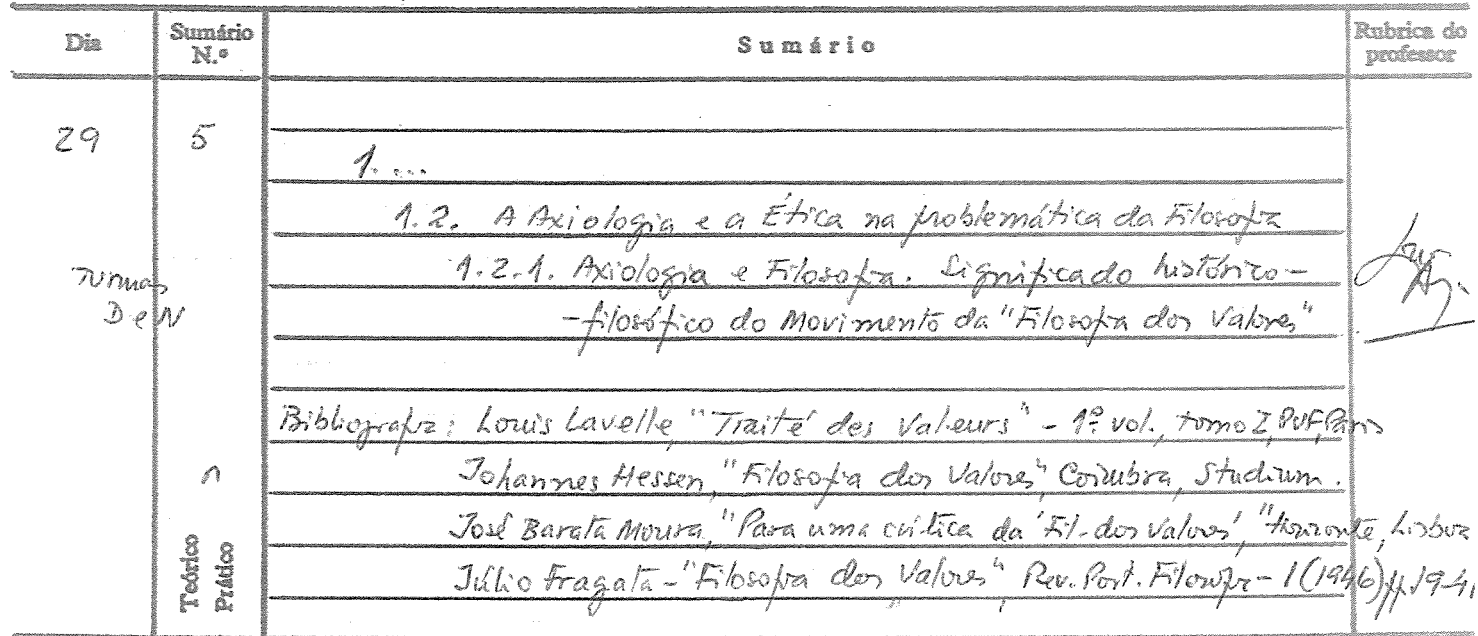 Dia
Sumário N.º
Sumário
Rubrica do professor
29
5
1. ...
1.2. A Axiologia e a Ética na problemática da Filosofia
1.2.1. Axiologia e Filosofia. Significado histórico-
-filosófico do Movimento da "Filosofia dos Valores"
Turmas
D e N
Bibliografia: Louis Lavelle, "Traité des Valeurs" - 1º vol., tomo I, PUF, Paris
Johannes Hessen, "Filosofia dos Valores", Coimbra, Studium.
José Barata Moura, "Para uma crítica da 'Fil. dos Valores'", Horizonte, Lisboa
Júlio Fragata - "Filosofia dos Valores", Rev. Port. Filosofia - 1 (1946) pp. 19-41
Teórico
Prático